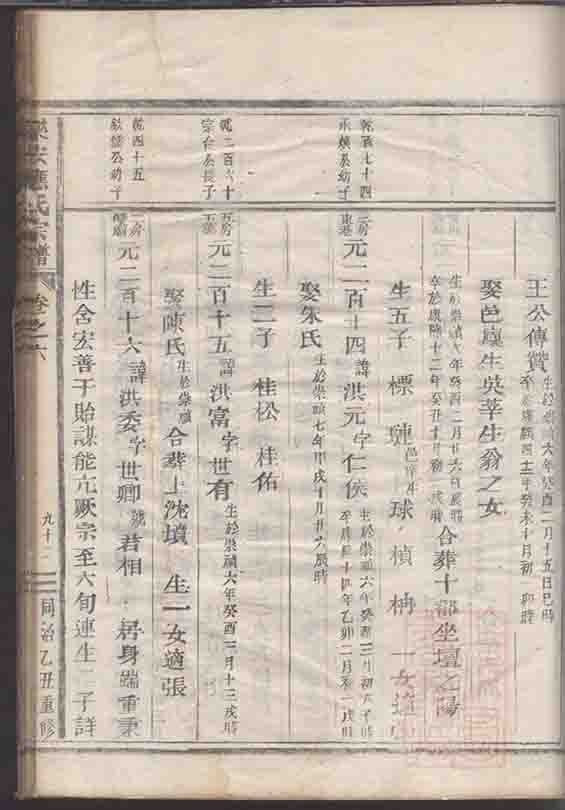 乾一百七十四
永煥公幼子
乾二百六十
宗台公長子
乾四十五
欽儒公幼子
王公傳贊 生於崇禎六年癸酉二月十五日巳時
卒於康熙四十二年癸未十月初一卯時
娶邑庠生吳莘生翁之女
生於崇禎六年癸酉二月廿六日辰時
卒於康熙十二年癸丑十月初一戌時 合葬十部坐壇之陽
生五子 標 璉邑庠生 球 楨 柟 一女適
元二百十四 諱洪元字仁侯 生於崇禎六年癸酉三月初六子時
卒康熙十四年乙卯二月戌時
娶朱氏 生於崇禎七年甲戌十月廿六辰時
生二子 桂松 桂佑
五房
元二百十五 諱洪富字世有 生於崇禎六年癸酉三月十三戌時
娶陳氏 生於崇禎 合葬上沈墳 生一女適張
元二百十六 諱洪委字世卿號君相 居身端重秉
性含宏善于貽謀能亢厥宗至六旬連生二子詳
樂安應氏宗譜 卷之六
九十二
同治乙丑重修